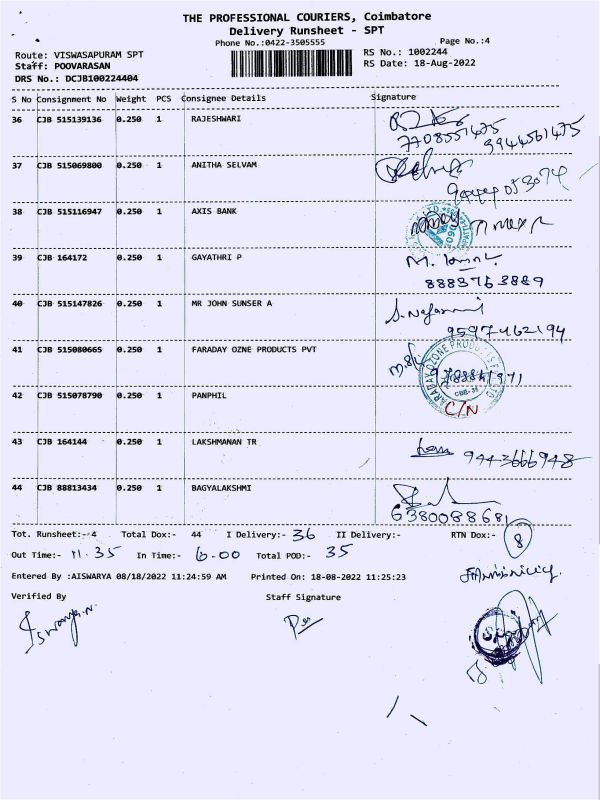 THE PROFESSIONAL COURIERS, Coimbatore
Delivery Runsheet - SPT
Phone No.:0422-3505555 Page No.:4
Route: VISWASAPURAM SPT RS No.: 1002244
Staff: POOVARASAN RS Date: 18-Aug-2022
DRS No.: DCJB100224404
S No Consignment No Weight PCS Consignee Details Signature
36 CJB 515139136 0.250 1 RAJESHWARI
7708551475 9944561475
37 CJB 515069800 0.250 1 ANITHA SELVAM
38 CJB 515116947 0.250 1 AXIS BANK
39 CJB 164172 0.250 1 GAYATHRI P
8883763889
40 CJB 515147826 0.250 1 MR JOHN SUNSER A
9597462194
41 CJB 515080665 0.250 1 FARADAY OZNE PRODUCTS PVT
42 CJB 515078790 0.250 1 PANPHIL
C/N
43 CJB 164144 0.250 1 LAKSHMANAN TR
9443666948
44 CJB 88813434 0.250 1 BAGYALAKSHMI
6380088681
Tot. Runsheet:- 4 Total Dox:- 44 I Delivery:- 36 II Delivery:- RTN Dox:- 8
Out Time:- 11.35 In Time:- 6.00 Total POD:- 35
Entered By :AISWARYA 08/18/2022 11:24:59 AM Printed On: 18-08-2022 11:25:23
Verified By Staff Signature